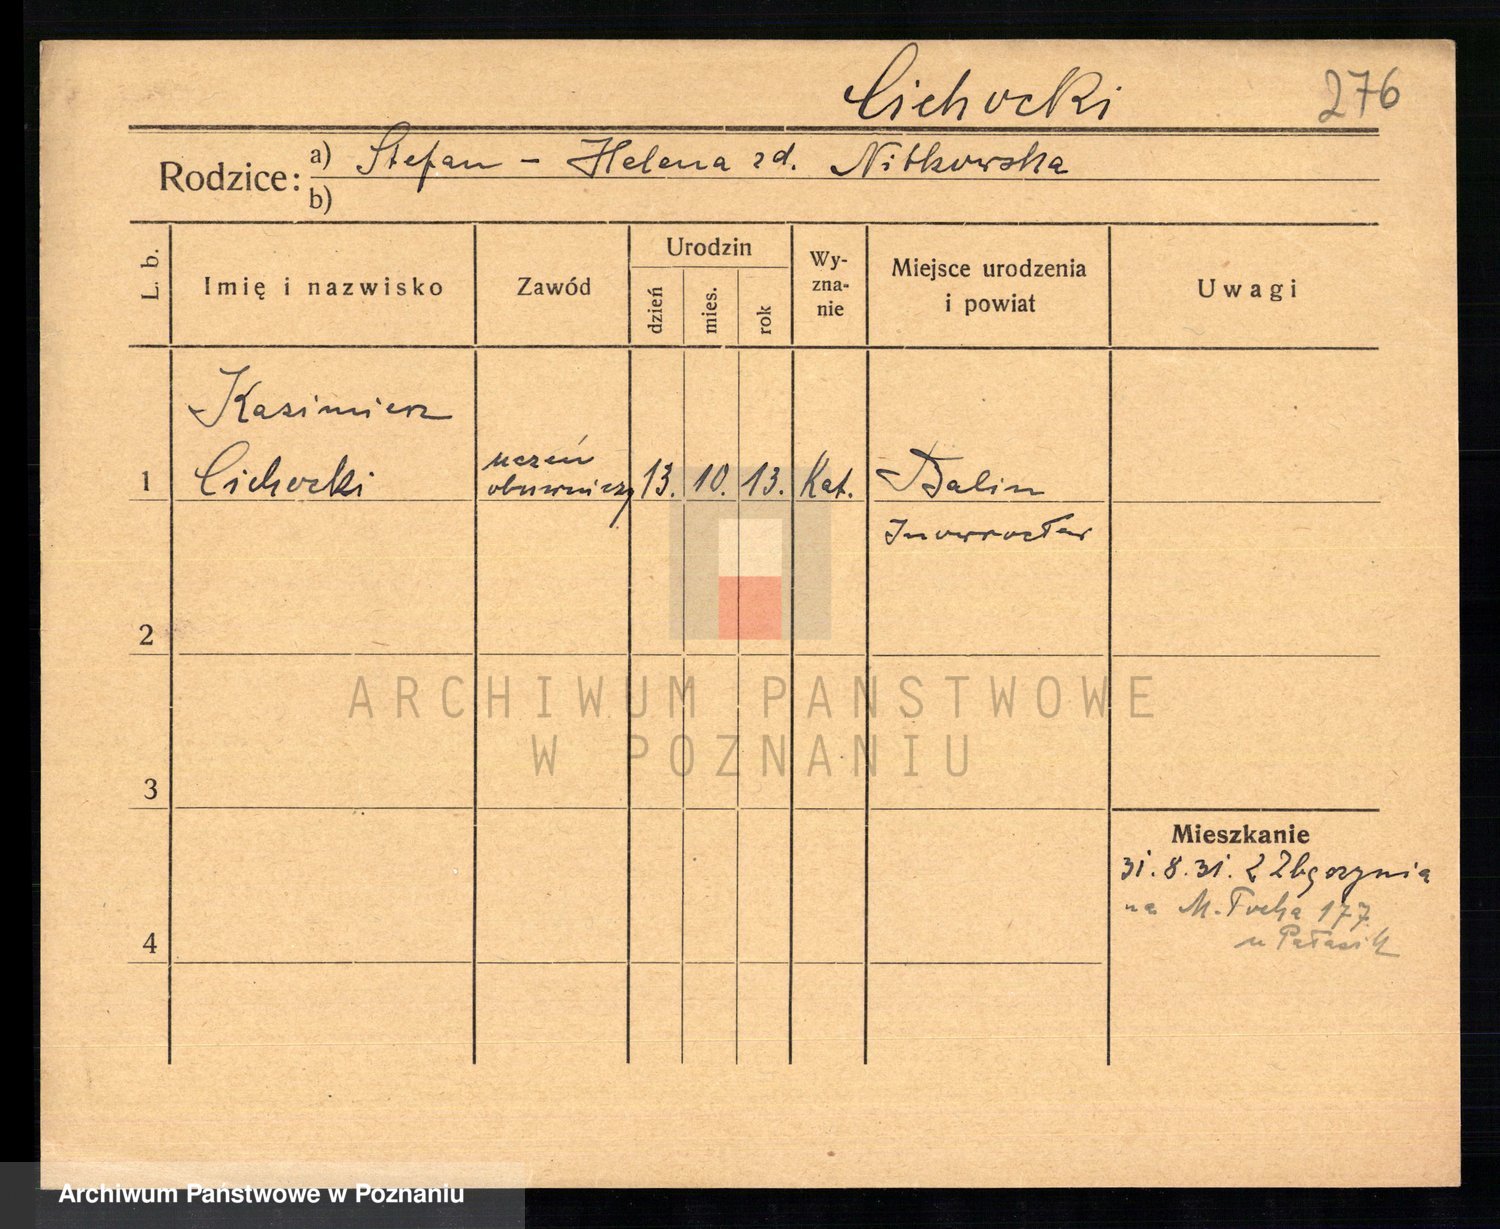 Cichocki 276
Rodzice: a) Stefan - Helena zd. Nitkowska
b)
L. b. Imię i nazwisko Zawód Urodzin dzień mies. rok Wy-zna-nie Miejsce urodzenia i powiat Uwagi
Kazimierz
1 Cichocki uczeń obuwniczy 13. 10. 13. Kat. Balin
Inowrocław
2
ARCHIWUM PAŃSTWOWE
W POZNANIU
3
Mieszkanie
31.8.31. z Zbąszynia
na M. Focha 177
4 u Pałasik
Archiwum Państwowe w Poznaniu